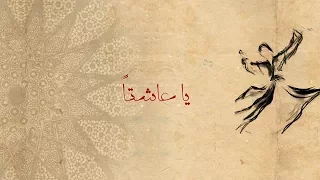 يا عاشقاً